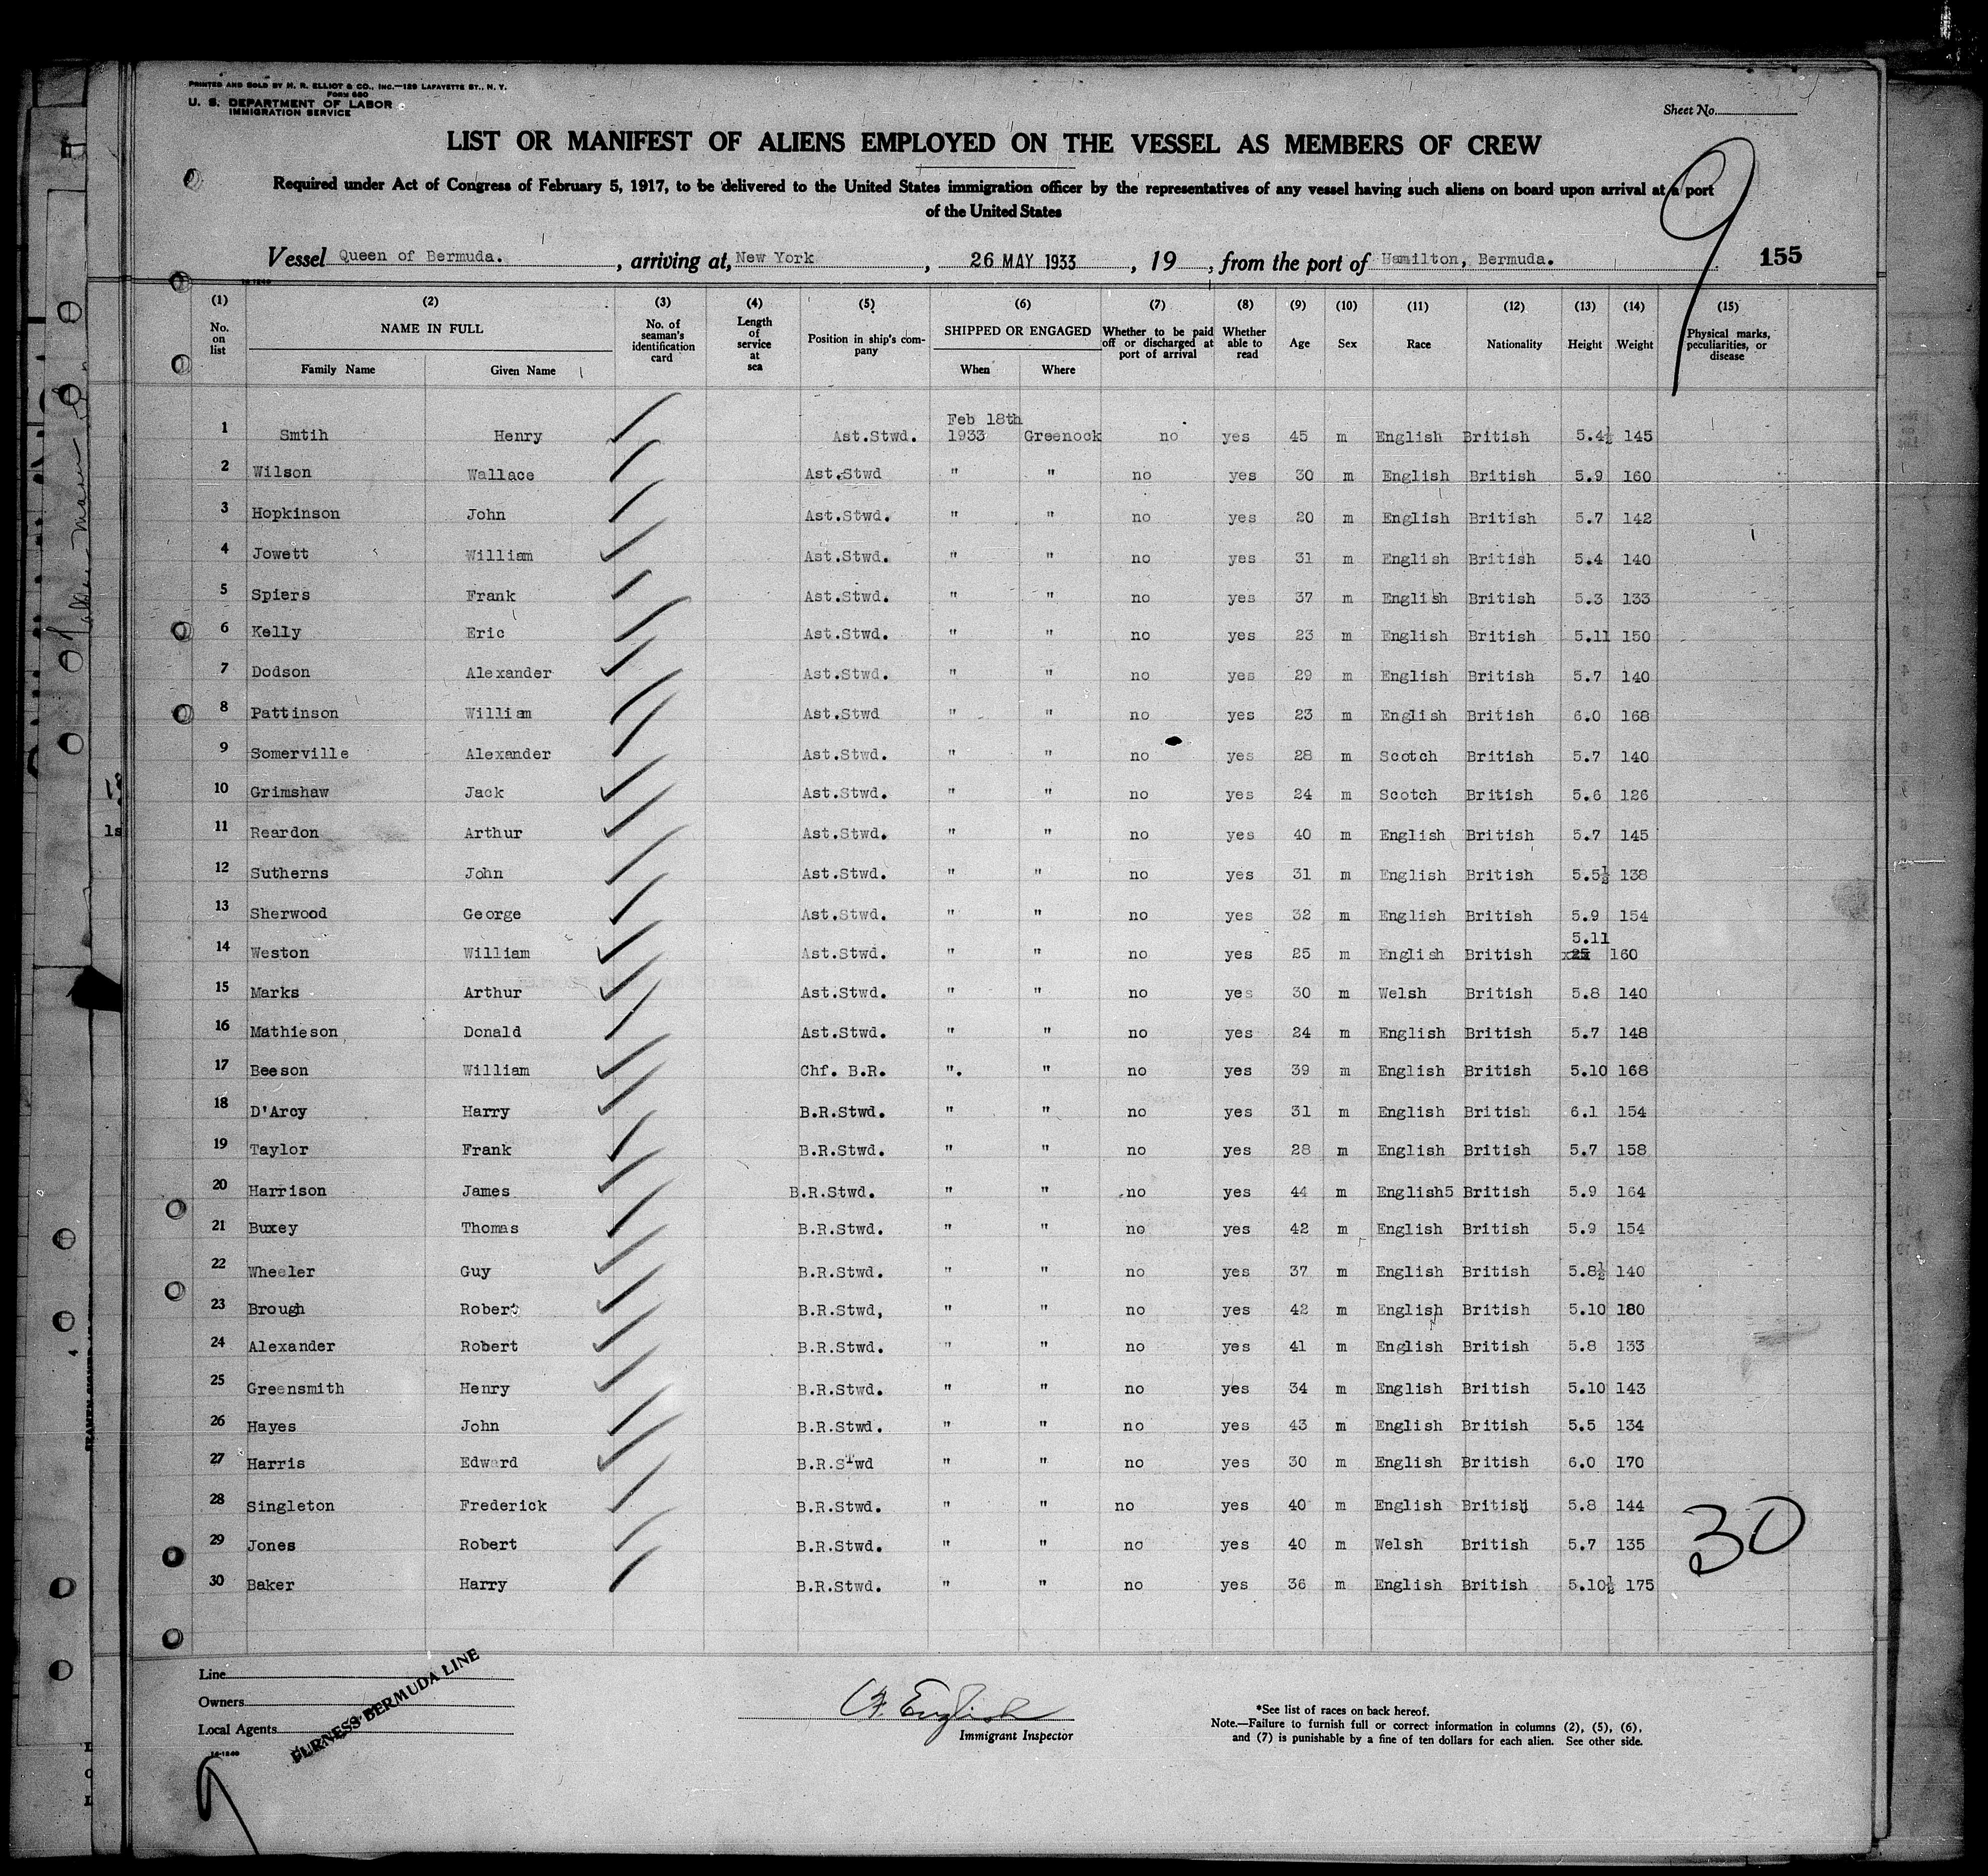 PRINTED AND SOLD BY H. R. ELLIOT & CO., INC.—129 LAFAYETTE ST., N. Y.
FORM 680
U. S. DEPARTMENT OF LABOR
IMMIGRATION SERVICE
Sheet No.
LIST OR MANIFEST OF ALIENS EMPLOYED ON THE VESSEL AS MEMBERS OF CREW
Required under Act of Congress of February 5, 1917, to be delivered to the United States immigration officer by the representatives of any vessel having such aliens on board upon arrival at a port
of the United States
9
Vessel Queen of Bermuda. , arriving at, New York , 26 MAY 1933 , 19 , from the port of Hamilton, Bermuda. 155
(1) (2) (3) (4) (5) (6) (7) (8) (9) (10) (11) (12) (13) (14) (15)
No. on list NAME IN FULL Family Name Given Name No. of seaman's identification card Length of service at sea Position in ship's company SHIPPED OR ENGAGED When Where Whether to be paid off or discharged at port of arrival Whether able to read Age Sex Race Nationality Height Weight Physical marks, peculiarities, or disease
Feb 18th
1 Smtih Henry Ast.Stwd. 1933 Greenock no yes 45 m English British 5.4½ 145
2 Wilson Wallace Ast.Stwd " " no yes 30 m English British 5.9 160
3 Hopkinson John Ast.Stwd. " " no yes 20 m English British 5.7 142
4 Jowett William Ast.Stwd. " " no yes 31 m English British 5.4 140
5 Spiers Frank Ast.Stwd. " " no yes 37 m English British 5.3 133
6 Kelly Eric Ast.Stwd. " " no yes 23 m English British 5.11 150
7 Dodson Alexander Ast.Stwd. " " no yes 29 m English British 5.7 140
8 Pattinson William Ast.Stwd " " no yes 23 m English British 6.0 168
9 Somerville Alexander Ast.Stwd. " " no yes 28 m Scotch British 5.7 140
10 Grimshaw Jack Ast.Stwd. " " no yes 24 m Scotch British 5.6 126
11 Reardon Arthur Ast.Stwd. " " no yes 40 m English British 5.7 145
12 Sutherns John Ast.Stwd. " " no yes 31 m English British 5.5½ 138
13 Sherwood George Ast.Stwd. " " no yes 32 m English British 5.9 154
5.11
14 Weston William Ast.Stwd. " " no yes 25 m English British 160
15 Marks Arthur Ast.Stwd. " " no yes 30 m Welsh British 5.8 140
16 Mathieson Donald Ast.Stwd. " " no yes 24 m English British 5.7 148
17 Beeson William Chf. B.R. ". " no yes 39 m English British 5.10 168
18 D'Arcy Harry B.R.Stwd. " " no yes 31 m English British 6.1 154
19 Taylor Frank B.R.Stwd. " " no yes 28 m English British 5.7 158
20 Harrison James B.R.Stwd. " " no yes 44 m English5 British 5.9 164
21 Buxey Thomas B.R.Stwd. " " no yes 42 m English British 5.9 154
22 Wheeler Guy B.R.Stwd. " " no yes 37 m English British 5.8½ 140
23 Brough Robert B.R.Stwd, " " no yes 42 m English British 5.10 180
24 Alexander Robert B.R.Stwd. " " no yes 41 m English British 5.8 133
25 Greensmith Henry B.R.Stwd. " " no yes 34 m English British 5.10 143
26 Hayes John B.R.Stwd. " " no yes 43 m English British 5.5 134
27 Harris Edward B.R.STwd " " no yes 30 m English British 6.0 170
28 Singleton Frederick B.R.Stwd. " " no yes 40 m English British 5.8 144
29 Jones Robert B.R.Stwd. " " no yes 40 m Welsh British 5.7 135
30 Baker Harry B.R.Stwd. " " no yes 36 m English British 5.10½ 175
30
Line
Owners
Local Agents
FURNESS BERMUDA LINE
English
Immigrant Inspector
*See list of races on back hereof.
Note.—Failure to furnish full or correct information in columns (2), (5), (6),
and (7) is punishable by a fine of ten dollars for each alien. See other side.
14-1240
9